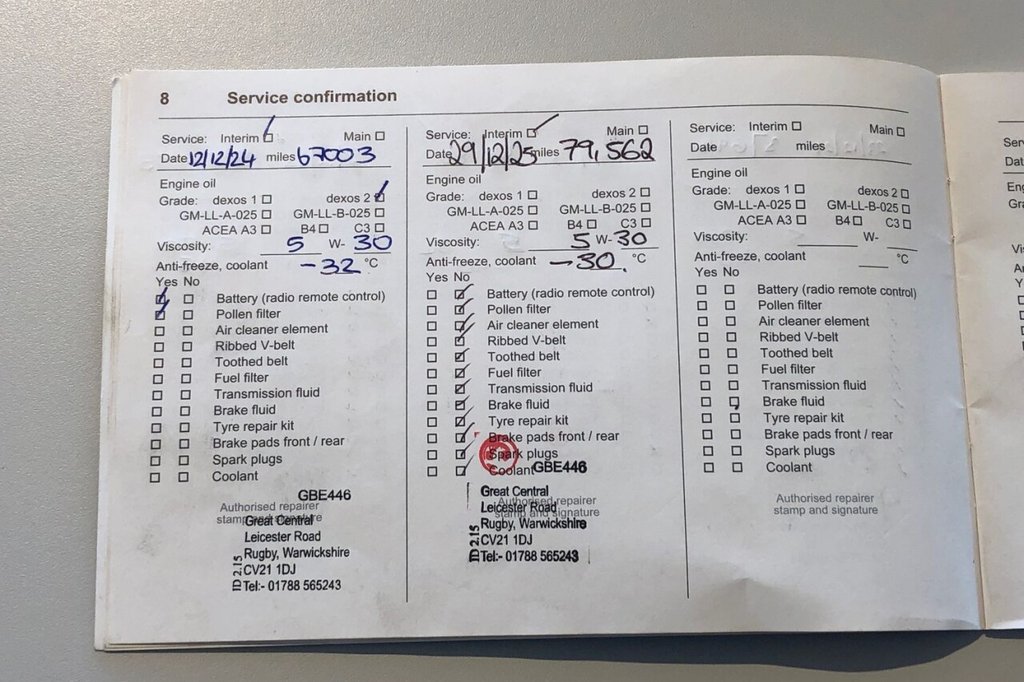 8 Service confirmation
Service: Interim Main
Date 12/12/24 miles 67003
Engine oil
Grade: dexos 1 dexos 2
GM-LL-A-025 GM-LL-B-025
ACEA A3 B4 C3
Viscosity: 5 W- 30
Anti-freeze, coolant -32 °C
Yes No
Battery (radio remote control)
Pollen filter
Air cleaner element
Ribbed V-belt
Toothed belt
Fuel filter
Transmission fluid
Brake fluid
Tyre repair kit
Brake pads front / rear
Spark plugs
Coolant
GBE446
Authorised repairer
stamp and signature
Great Central
Leicester Road
Rugby, Warwickshire
CV21 1DJ
Tel:- 01788 565243
ID 2.15
Service: Interim Main
Date 29/12/25 miles 79,562
Engine oil
Grade: dexos 1 dexos 2
GM-LL-A-025 GM-LL-B-025
ACEA A3 B4 C3
Viscosity: 5 W- 30
Anti-freeze, coolant -30. °C
Yes No
Battery (radio remote control)
Pollen filter
Air cleaner element
Ribbed V-belt
Toothed belt
Fuel filter
Transmission fluid
Brake fluid
Tyre repair kit
Brake pads front / rear
Spark plugs
Coolant
GBE446
Great Central
Authorised repairer
Leicester Road
stamp and signature
Rugby, Warwickshire
CV21 1DJ
Tel:- 01788 565243
ID 2.15
Service: Interim Main
Date miles
Engine oil
Grade: dexos 1 dexos 2
GM-LL-A-025 GM-LL-B-025
ACEA A3 B4 C3
Viscosity: W-
Anti-freeze, coolant °C
Yes No
Battery (radio remote control)
Pollen filter
Air cleaner element
Ribbed V-belt
Toothed belt
Fuel filter
Transmission fluid
Brake fluid
Tyre repair kit
Brake pads front / rear
Spark plugs
Coolant
Authorised repairer
stamp and signature